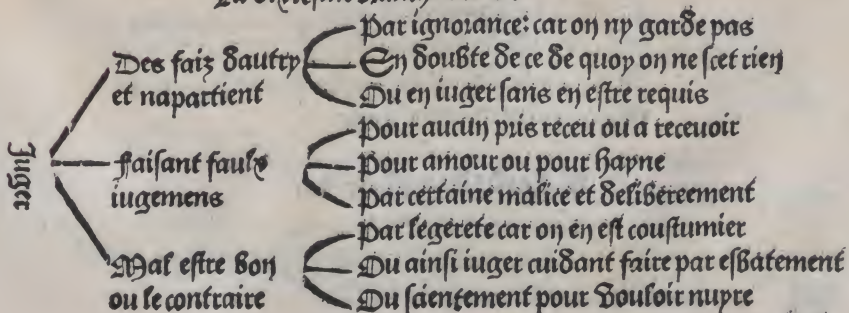 Juger
Des faiz dautry
et napartient
Par ignorance: car on ny garde pas
En doubte de ce de quoy on ne scet rien
Ou en iuger sans en estre requis
faisant faulx
iugemens
Pour aucun pris receu ou a receuoir
Pour amour ou pour hayne
Par certaine malice et delibereement
Mal estre bon
ou le contraire
Par legerete car on en est coustumier
Ou ainsi iuger cuidant faire par esbatement
Ou scientement pour vouloir nuyre